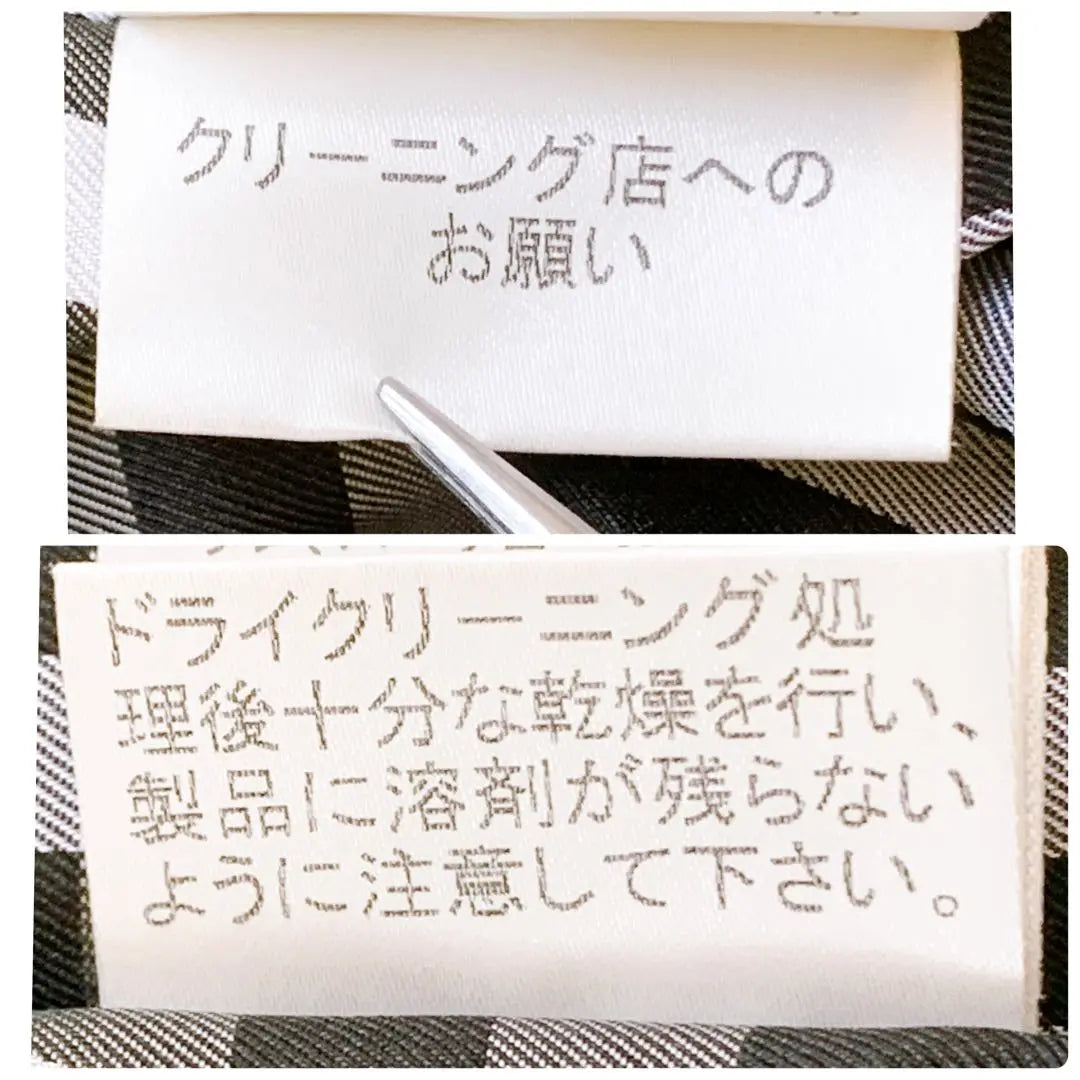 クリーニング店への
お願い
ドライクリーニング処
理後十分な乾燥を行い、
製品に溶剤が残らない
ように注意して下さい。